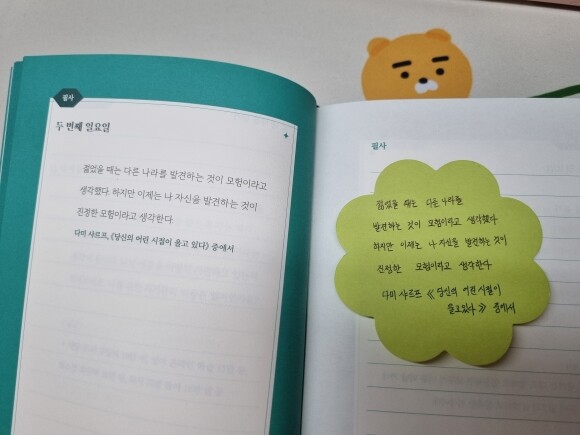 필사
두 번째 일요일
젊었을 때는 다른 나라를 발견하는 것이 모험이라고
생각했다. 하지만 이제는 나 자신을 발견하는 것이
진정한 모험이라고 생각한다.
다미 샤르프, 《당신의 어린 시절이 울고 있다》 중에서
필사
젊었을 때는 다른 나라를
발견하는 것이 모험이라고 생각했다
하지만 이제는 나 자신을 발견하는 것이
진정한 모험이라고 생각한다
다미 샤르프 《당신의 어린 시절이
울고있다》 중에서